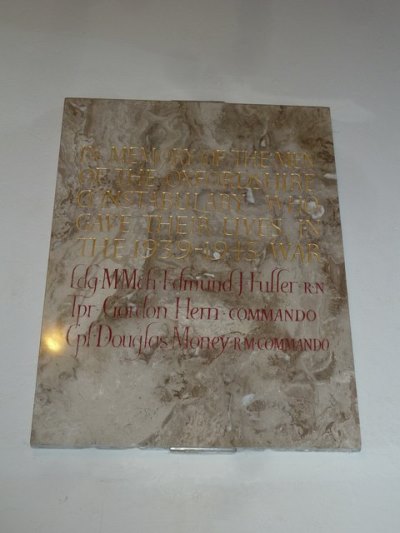 IN MEMORY OF THE MEN
OF THE OXFORDSHIRE
CONSTABULARY WHO
GAVE THEIR LIVES IN
THE 1939-1945 WAR
Ldg M·Mch Edmund J Fuller · R·N
Tpr Gordon Hem · COMMANDO
Cpl · Douglas Money · R·M·COMMANDO